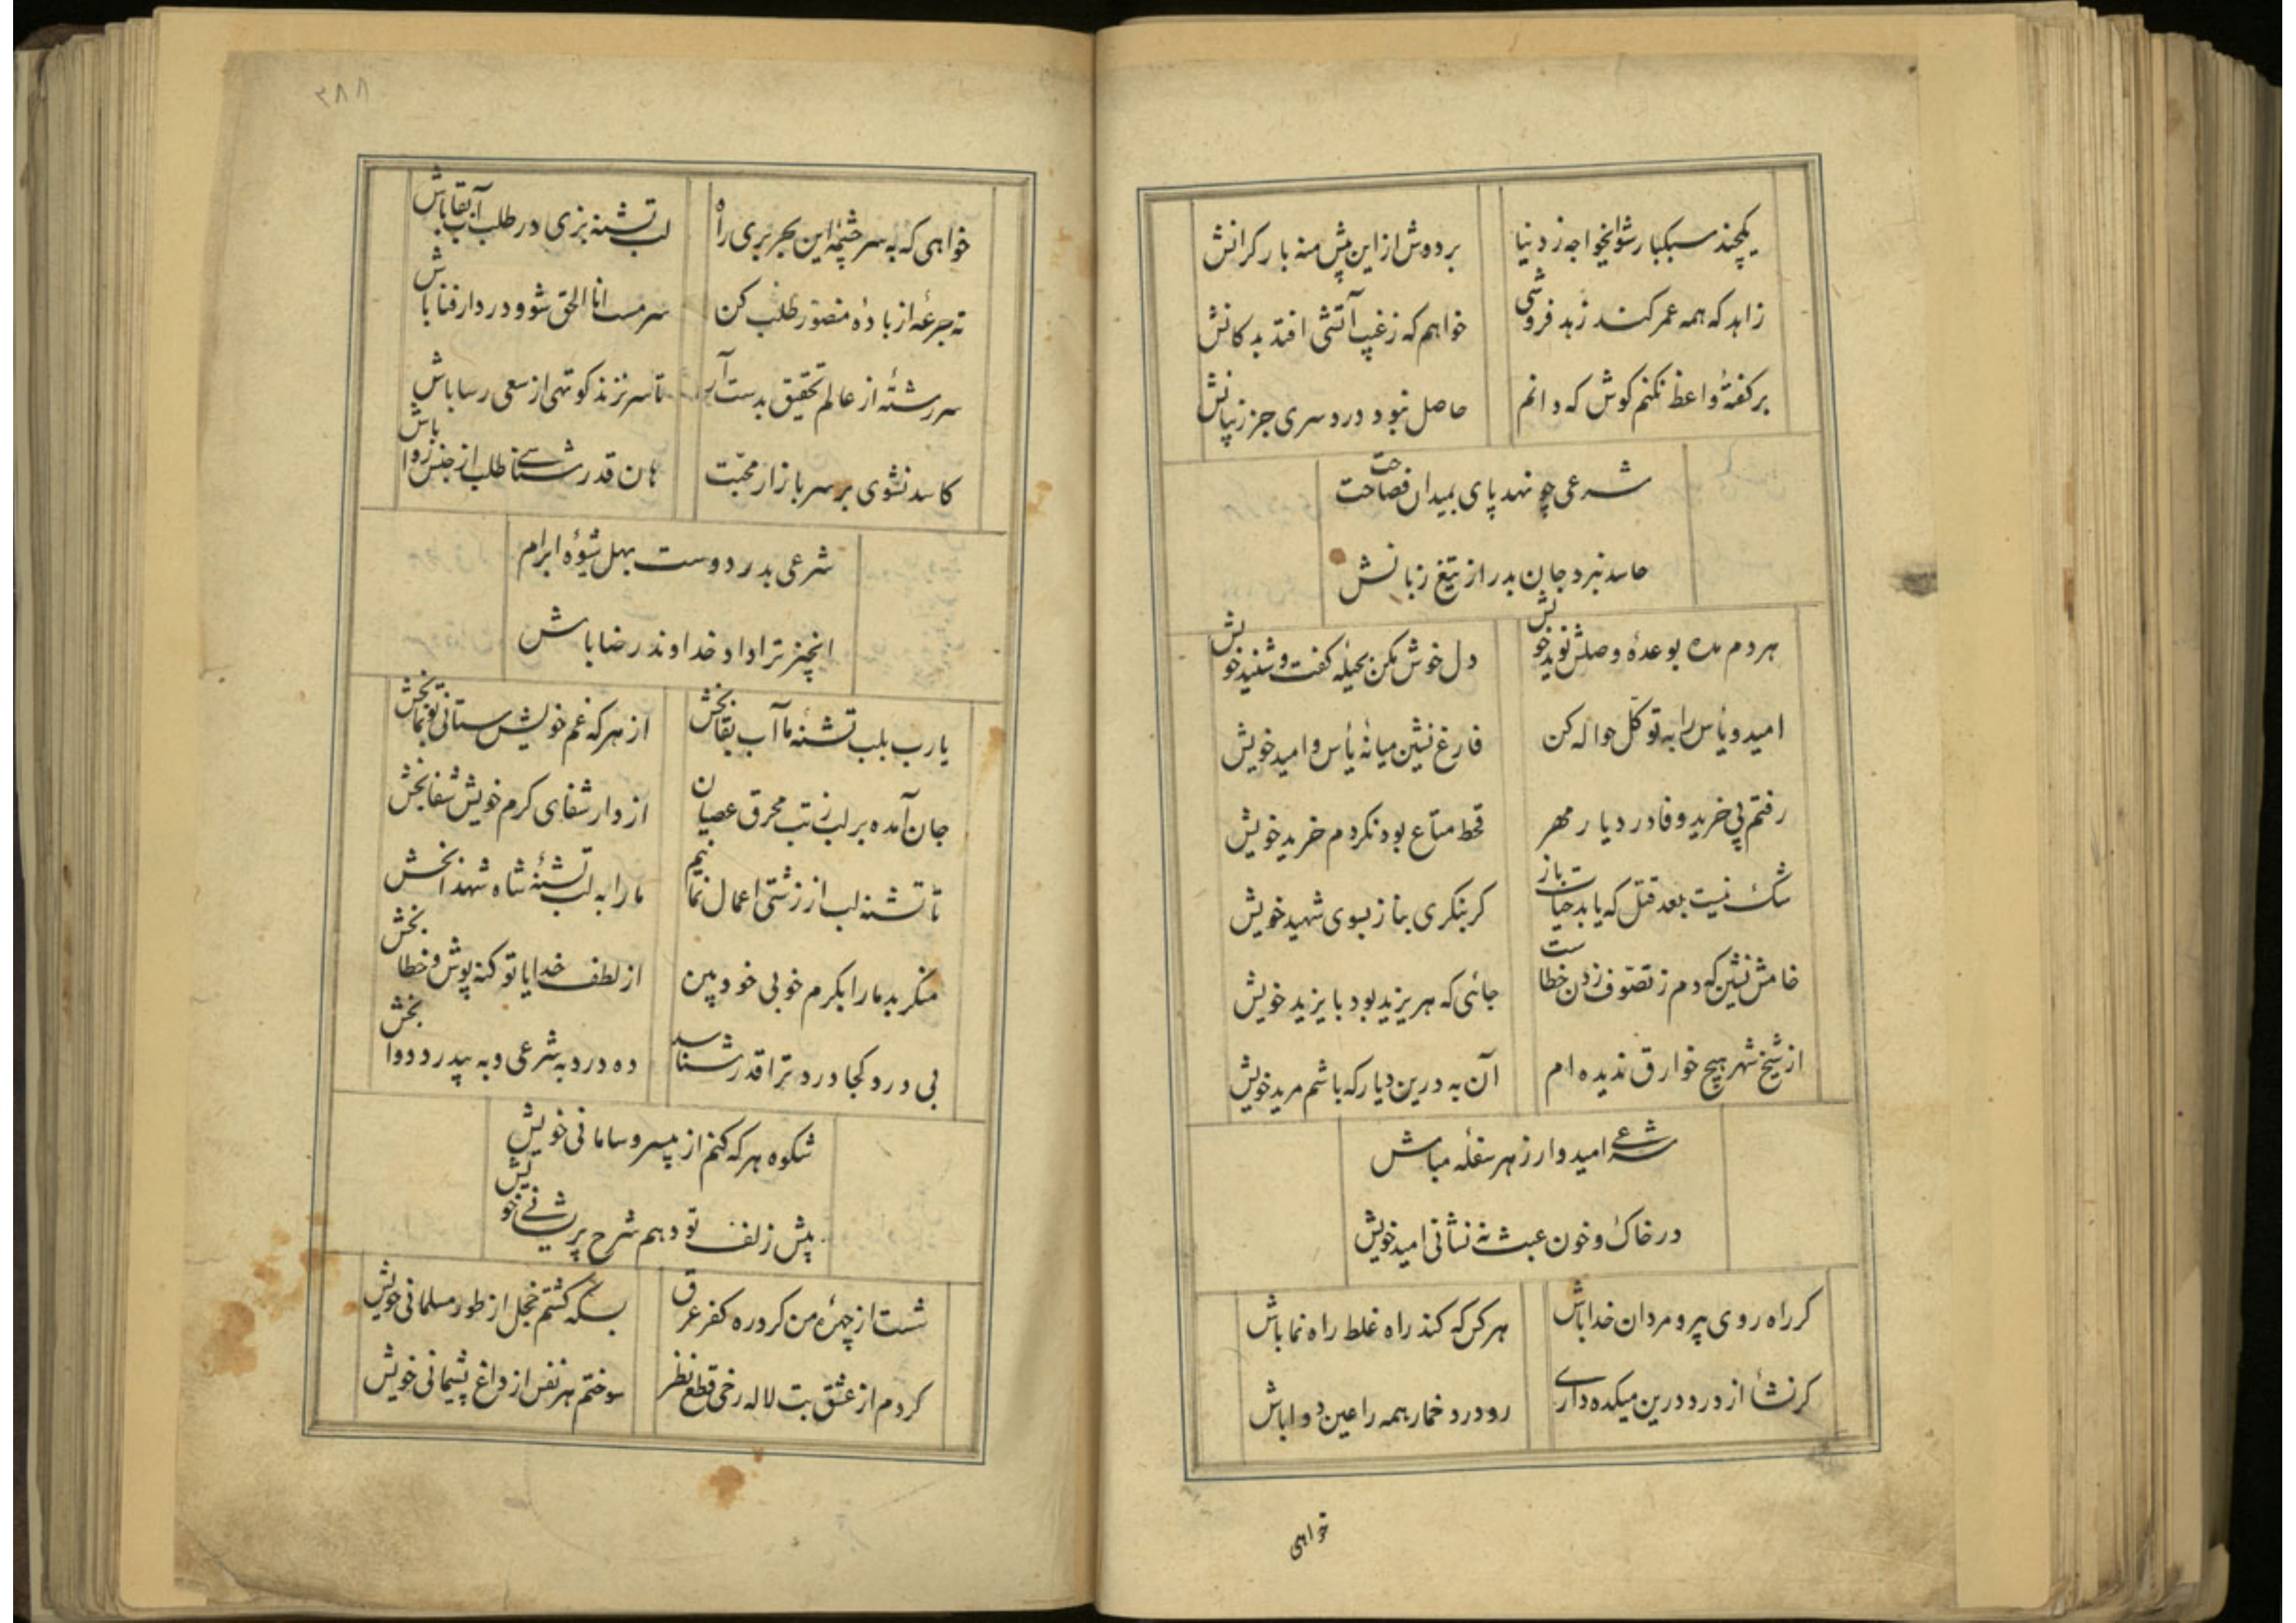 یکچند سبکبار شو ایخواجه ز دنیا
بر دوش ازاین پش منه بار کرانش
زاهد که همه عمر کند زهد فروشی
خواهم که ز غیب آتشی افتد بدکانش
بر کفتهٔ واعظ نکنم کوش که دانم
حاصل نبود دردسری جز ز بیانش
شرعی چو نهد پای بمیدان فصاحت
حاسد نبرد جان بدر از تیغ زبانش
هر دم مده بوعدهٔ وصلش نوید خویش
دل خوش مکن بحیلهٔ کفت و شنید خویش
امید و یأس را به توکّل حواله کن
فارغ نشین میانهٔ یأس و امید خویش
رفتم پی خرید وفا در دیار مهر
قحط متاع بود نکردم خرید خویش
شک نیست بعد قتل که یابد حیات باز
کر بنکری بناز بسوی شهید خویش
خامش نشین که دم ز تصوّف زدن خطاست
جائی که هر یزید بود بایزید خویش
از شیخ شهر هیچ خوارق ندیده ام
آن به درین دیار که باشم مرید خویش
شرعی امیدوار ز هر سفله مباش
در خاک و خون عبث نه نشانی امید خویش
کر راه روی پیرو مردان خدا باش
هر کس که کند راه غلط راه نما باش
کر نشأ از درد درین میکده داری
رو درد خمار همه را عین دوا باش
خواهی
٣٨٨
خواهی که به سر چشمهٔ این بحر بری راه
لب تشنه بزی در طلب آب بقا باش
ته جرعهٔ از بادهٔ منصور طلب کن
سرمست انا الحق شو و در دار فنا باش
سر رشتهٔ از عالم تحقیق بدست آر
تا سر نزند کوتهی از سعی رسا باش
کاسد نشوی بر سر بازار محبّت
هان قدر شناسی طلب از جنس روا باش
شرعی بدر دوست بهل شیوهٔ ابرام
انچیز ترا داد خداوند رضا باش
یا رب بلب تشنهٔ ما آب بقا بخش
از هر که غم خویش ستانی تو بما بخش
جان آمده بر لب ز تب محرق عصیان
از دار شفای کرم خویش شفا بخش
تا تشنه لب از زشتی اعمال نمانیم
ما را به لب تشنهٔ شاه شهدا بخش
منکر بد ما را بکرم خوبی خود بین
از لطف خدایا تو کنه پوش و خطا بخش
بی درد کجا درد ترا قدر شناسد
ده درد به شرعی و به بیدرد دوا بخش
شکوه هر که کنم از بیسر و سامانی خویش
پیش زلف تو دهم شرح پریشانی خویش
شست از چهرهٔ من کرد ره کفر عرق
بسکه کشتم خجل از طور مسلمانی خویش
کردم از عشق بت لاله رخی قطع نظر
سوختم هر نفس از داغ پشیمانی خویش